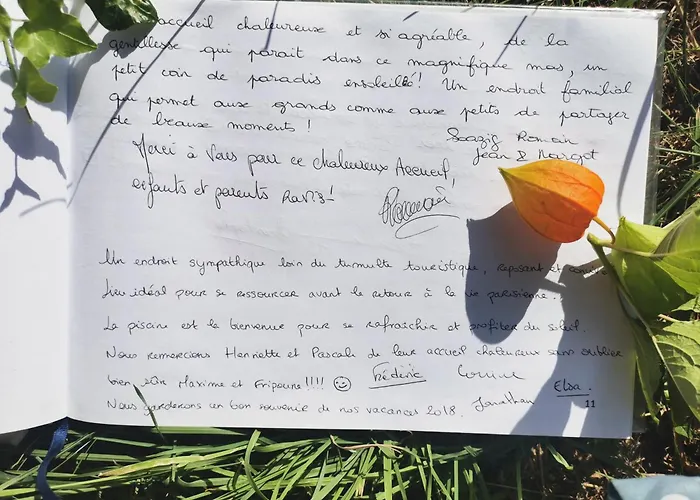 accueil chaleureux et si agréable, de la
gentillesse qui parait dans ce magnifique mas, un
petit coin de paradis ensoleillé! Un endroit familial
qui permet aux grands comme aux petits de partager
de beaux moments !
Soazig Romain
Jean & Margot
Merci à Vous pour ce chaleureux Accueil,
enfants et parents Ravis!
Un endroit sympathique loin du tumulte touristique, reposant et
lieu idéal pour se ressourcer avant le retour à la vie parisienne.
La piscine est la bienvenue pour se rafraichir et profiter du soleil.
Nous remercions Henriette et Pascale de leur accueil chaleureux sans oublier
bien sûr Maxime et Fripoune!!!! ☺ Frédéric
Elsa.
Nous garderons un bon souvenir de nos vacances 2018. Jonathan
11